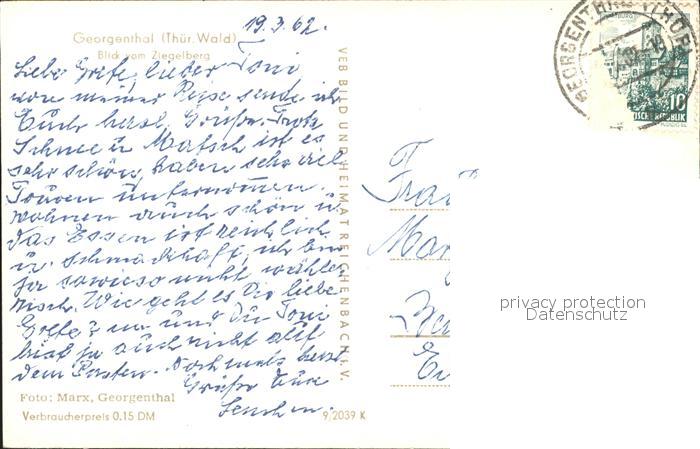 19.3.62.
Georgenthal (Thür. Wald)
Blick vom Ziegelberg
Liebe Grete, lieber Toni
von meiner Reise sende ich
Euch herzl. Grüße. Trotz
Schnee u. Matsch ist es
sehr schön, haben schon viel
Touren unternommen.
wohnen auch schön u.
das Essen ist reichlich
u. schmackhaft, ich bin
ja sowieso nicht wähle-
risch. Wie geht es Dir liebe
Grete? na und Du Toni
bist ja auch nicht auf
dem Posten. Nochmals herzl.
Grüße Eure
Lenchen.
Foto: Marx, Georgenthal
Verbraucherpreis 0.15 DM
9/2039 K
VEB BILD UND HEIMAT REICHENBACH I. V.
GEORGENTHAL (THÜR)
10
privacy protection
Datenschutz